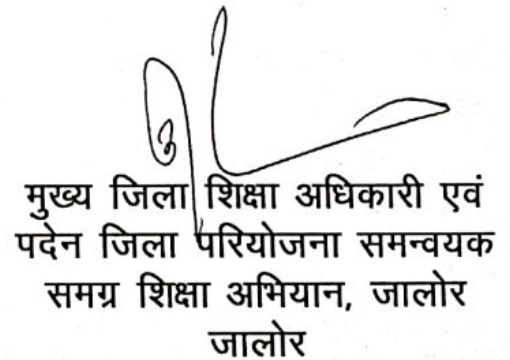 मुख्य जिला शिक्षा अधिकारी एवं
पदेन जिला परियोजना समन्वयक
समग्र शिक्षा अभियान, जालोर
जालोर